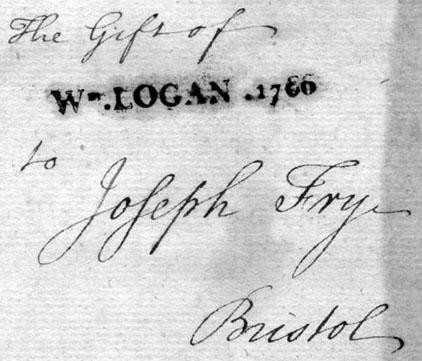 The Gift of
Wm. LOGAN .1766
to
Joseph Fry
Bristol